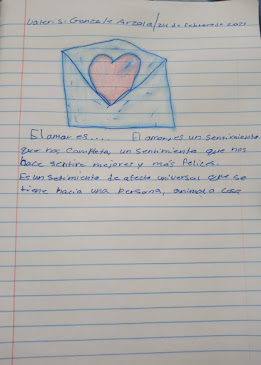 Valeri S. Gonzale Arzola/21 de febrero de 2021
El amar es..... El amar, es un sentimiento
que nos completa, un sentimiento que nos
hace sentirse mejores y más felices.
Es un setimiento de afecto universal que se
tiene hacia una persona, animal o cosa